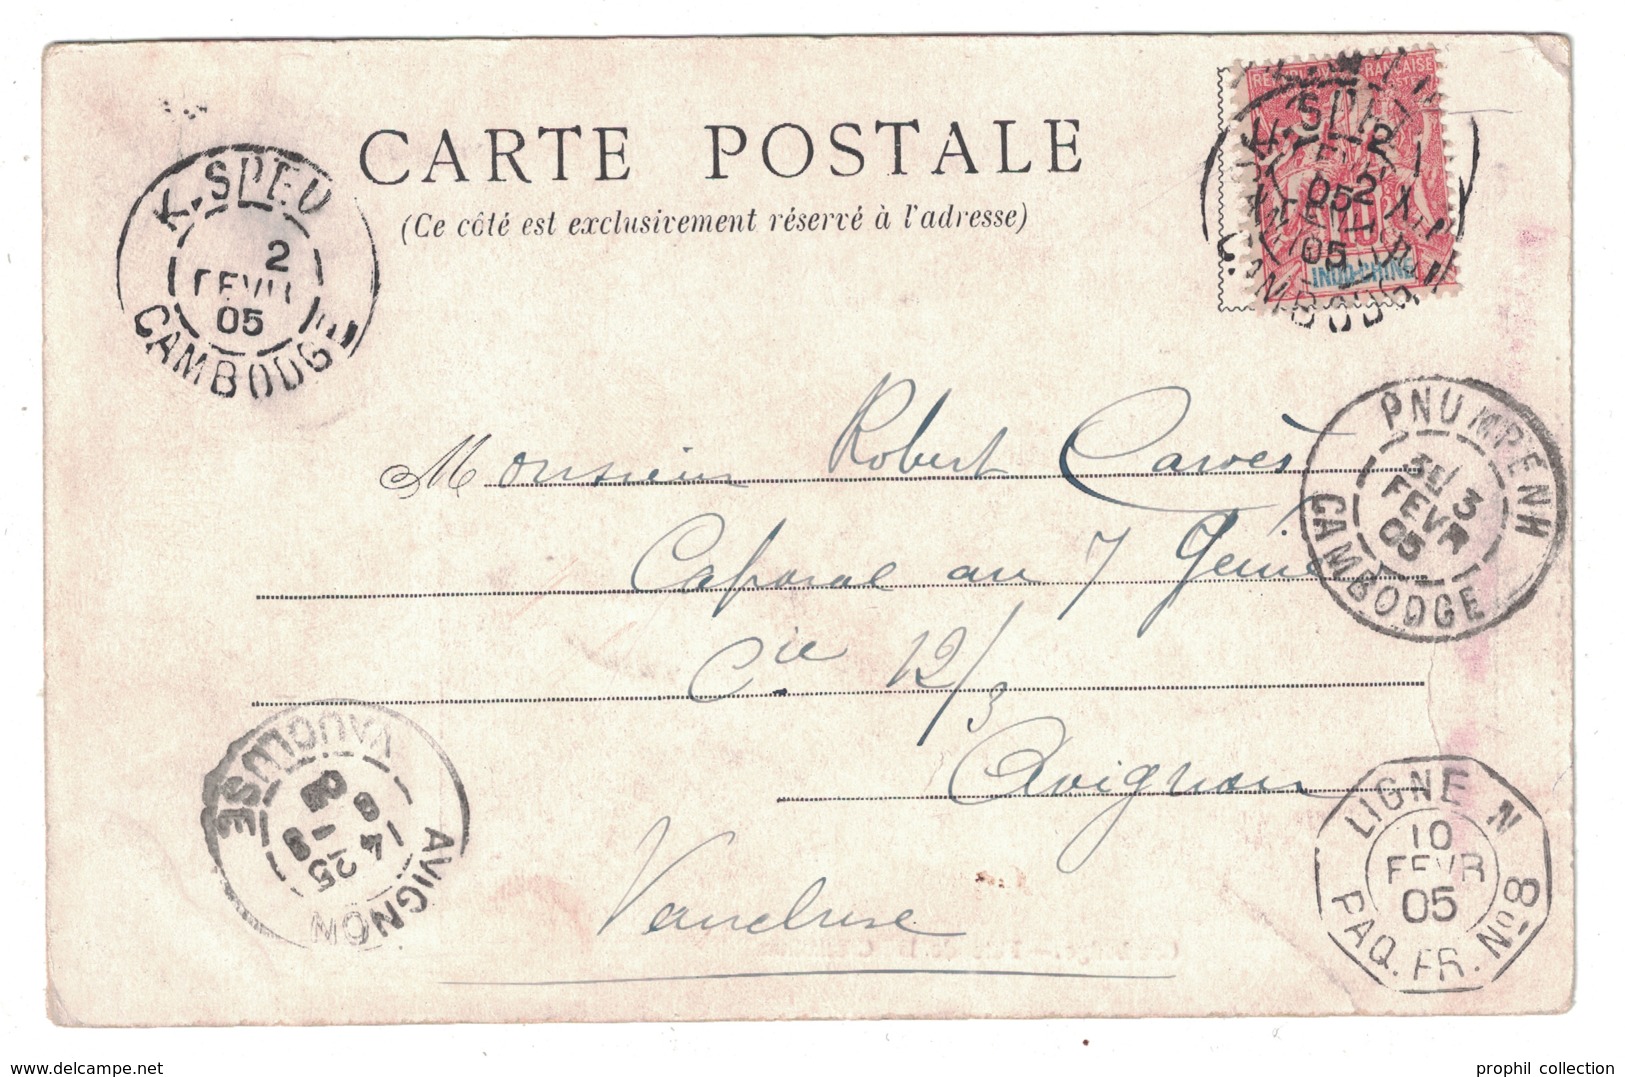 CARTE POSTALE
(Ce côté est exclusivement réservé à l'adresse)
K. SPEU
2
FEVR
05
CAMBODGE
RÉPUBLIQUE FRANÇAISE
10
INDO-CHINE
K. SPEU
2
05
CAMBODGE
Monsieur Robert Carvès
Caporal au 7 Génie
Cie 12/3
Avignon
Vaucluse
PNUMPENH
3E/ 3
FEVR
05
CAMBODGE
AVIGNON
VAUCLUSE
LIGNE N
10
FEVR
05
PAQ. FR. N○ 8
www.delcampe.net
prophil collection